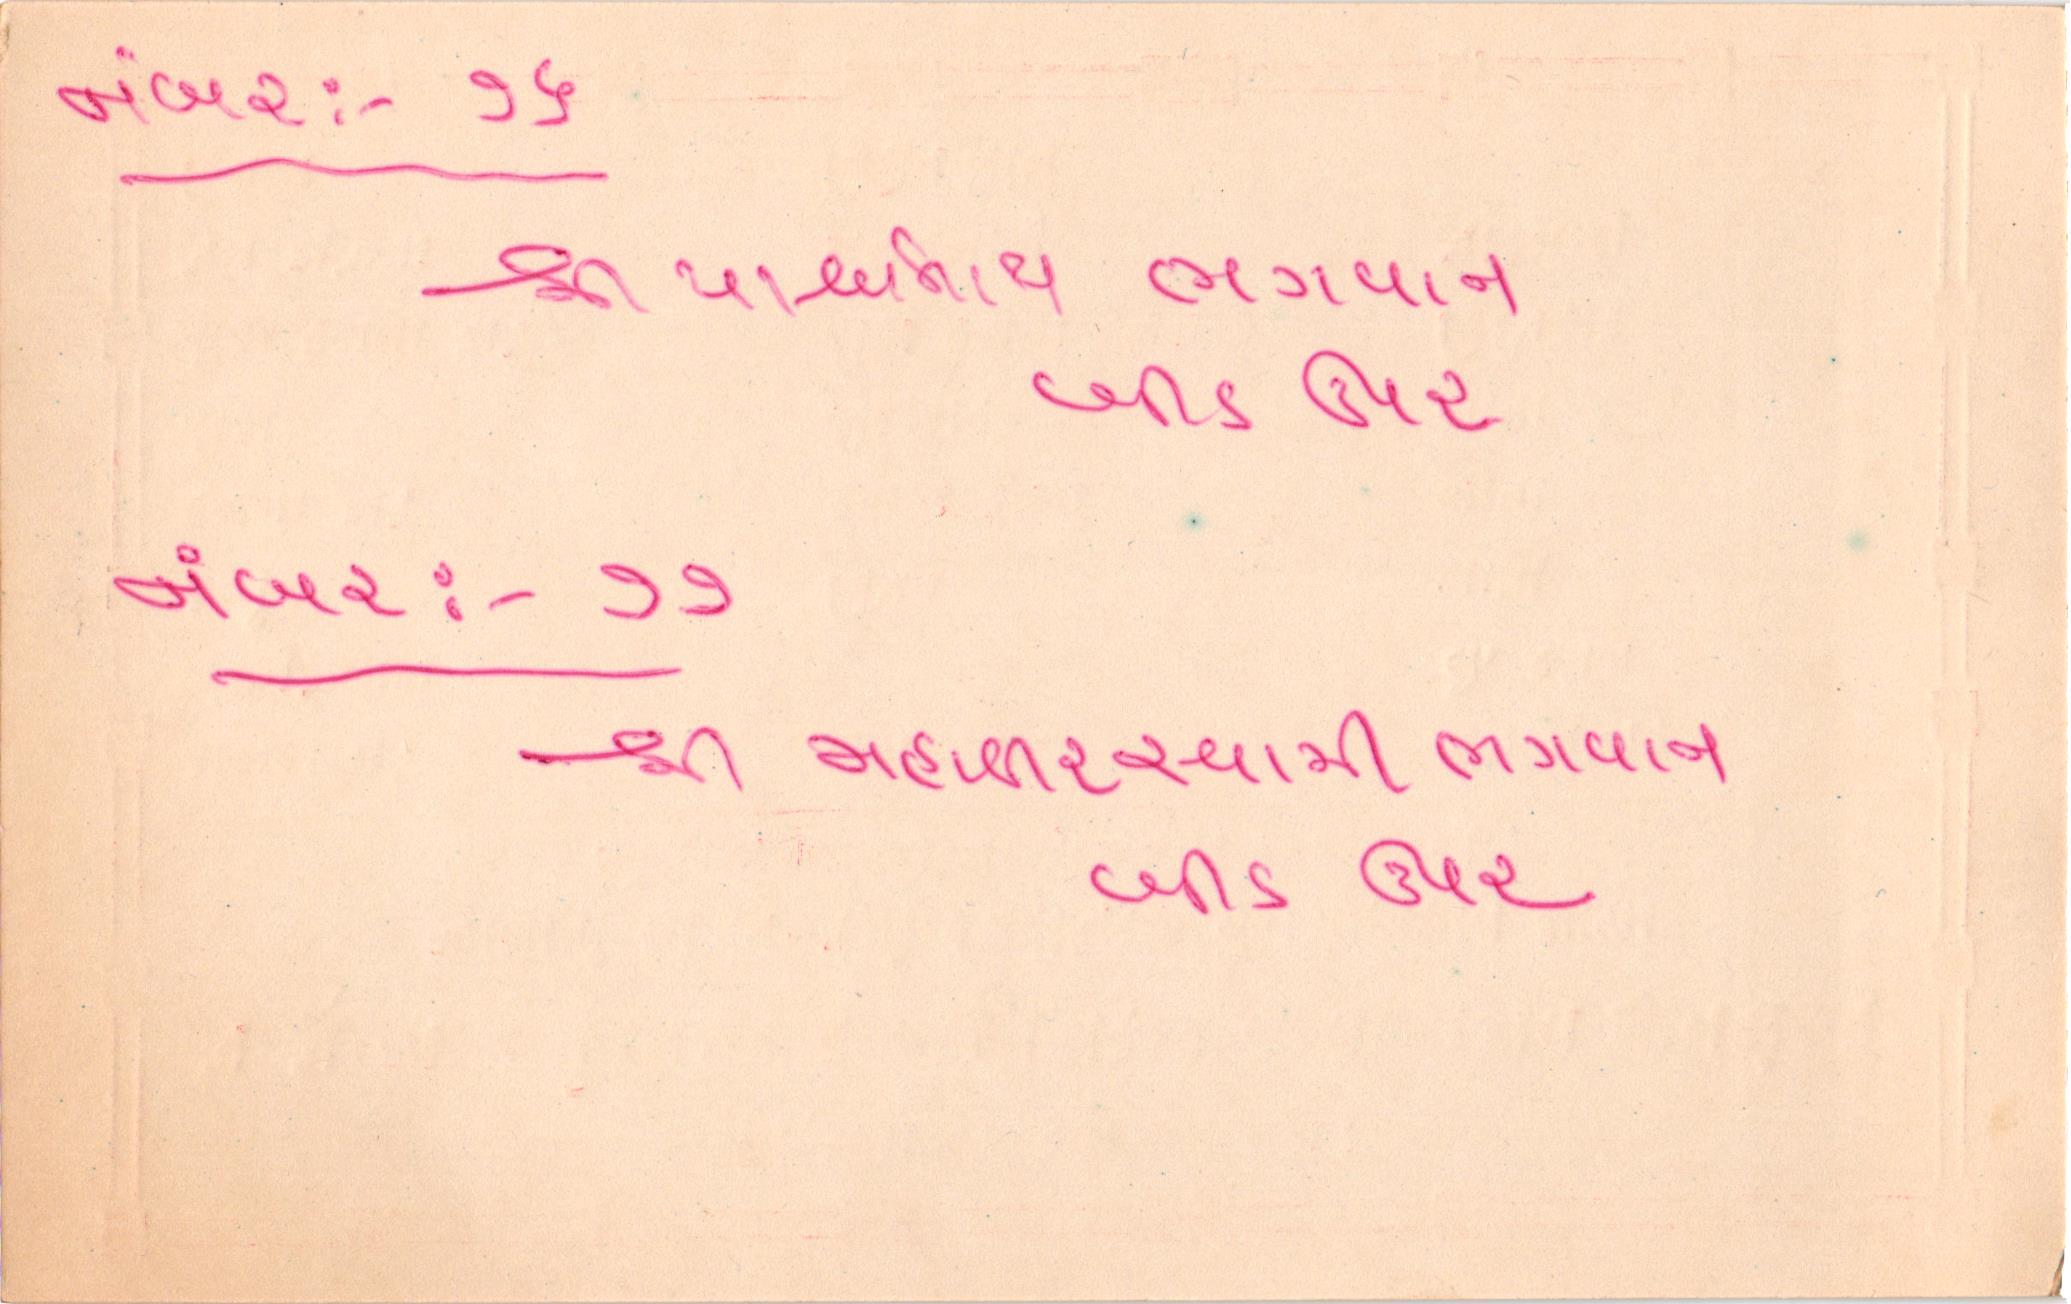 નંબર:- ૧૫
શ્રી પાર્શ્વનાથ ભગવાન
બીડ ઉપર
નંબર:- ૧૧
શ્રી મહાવીરસ્વામી ભગવાન
બીડ ઉપર